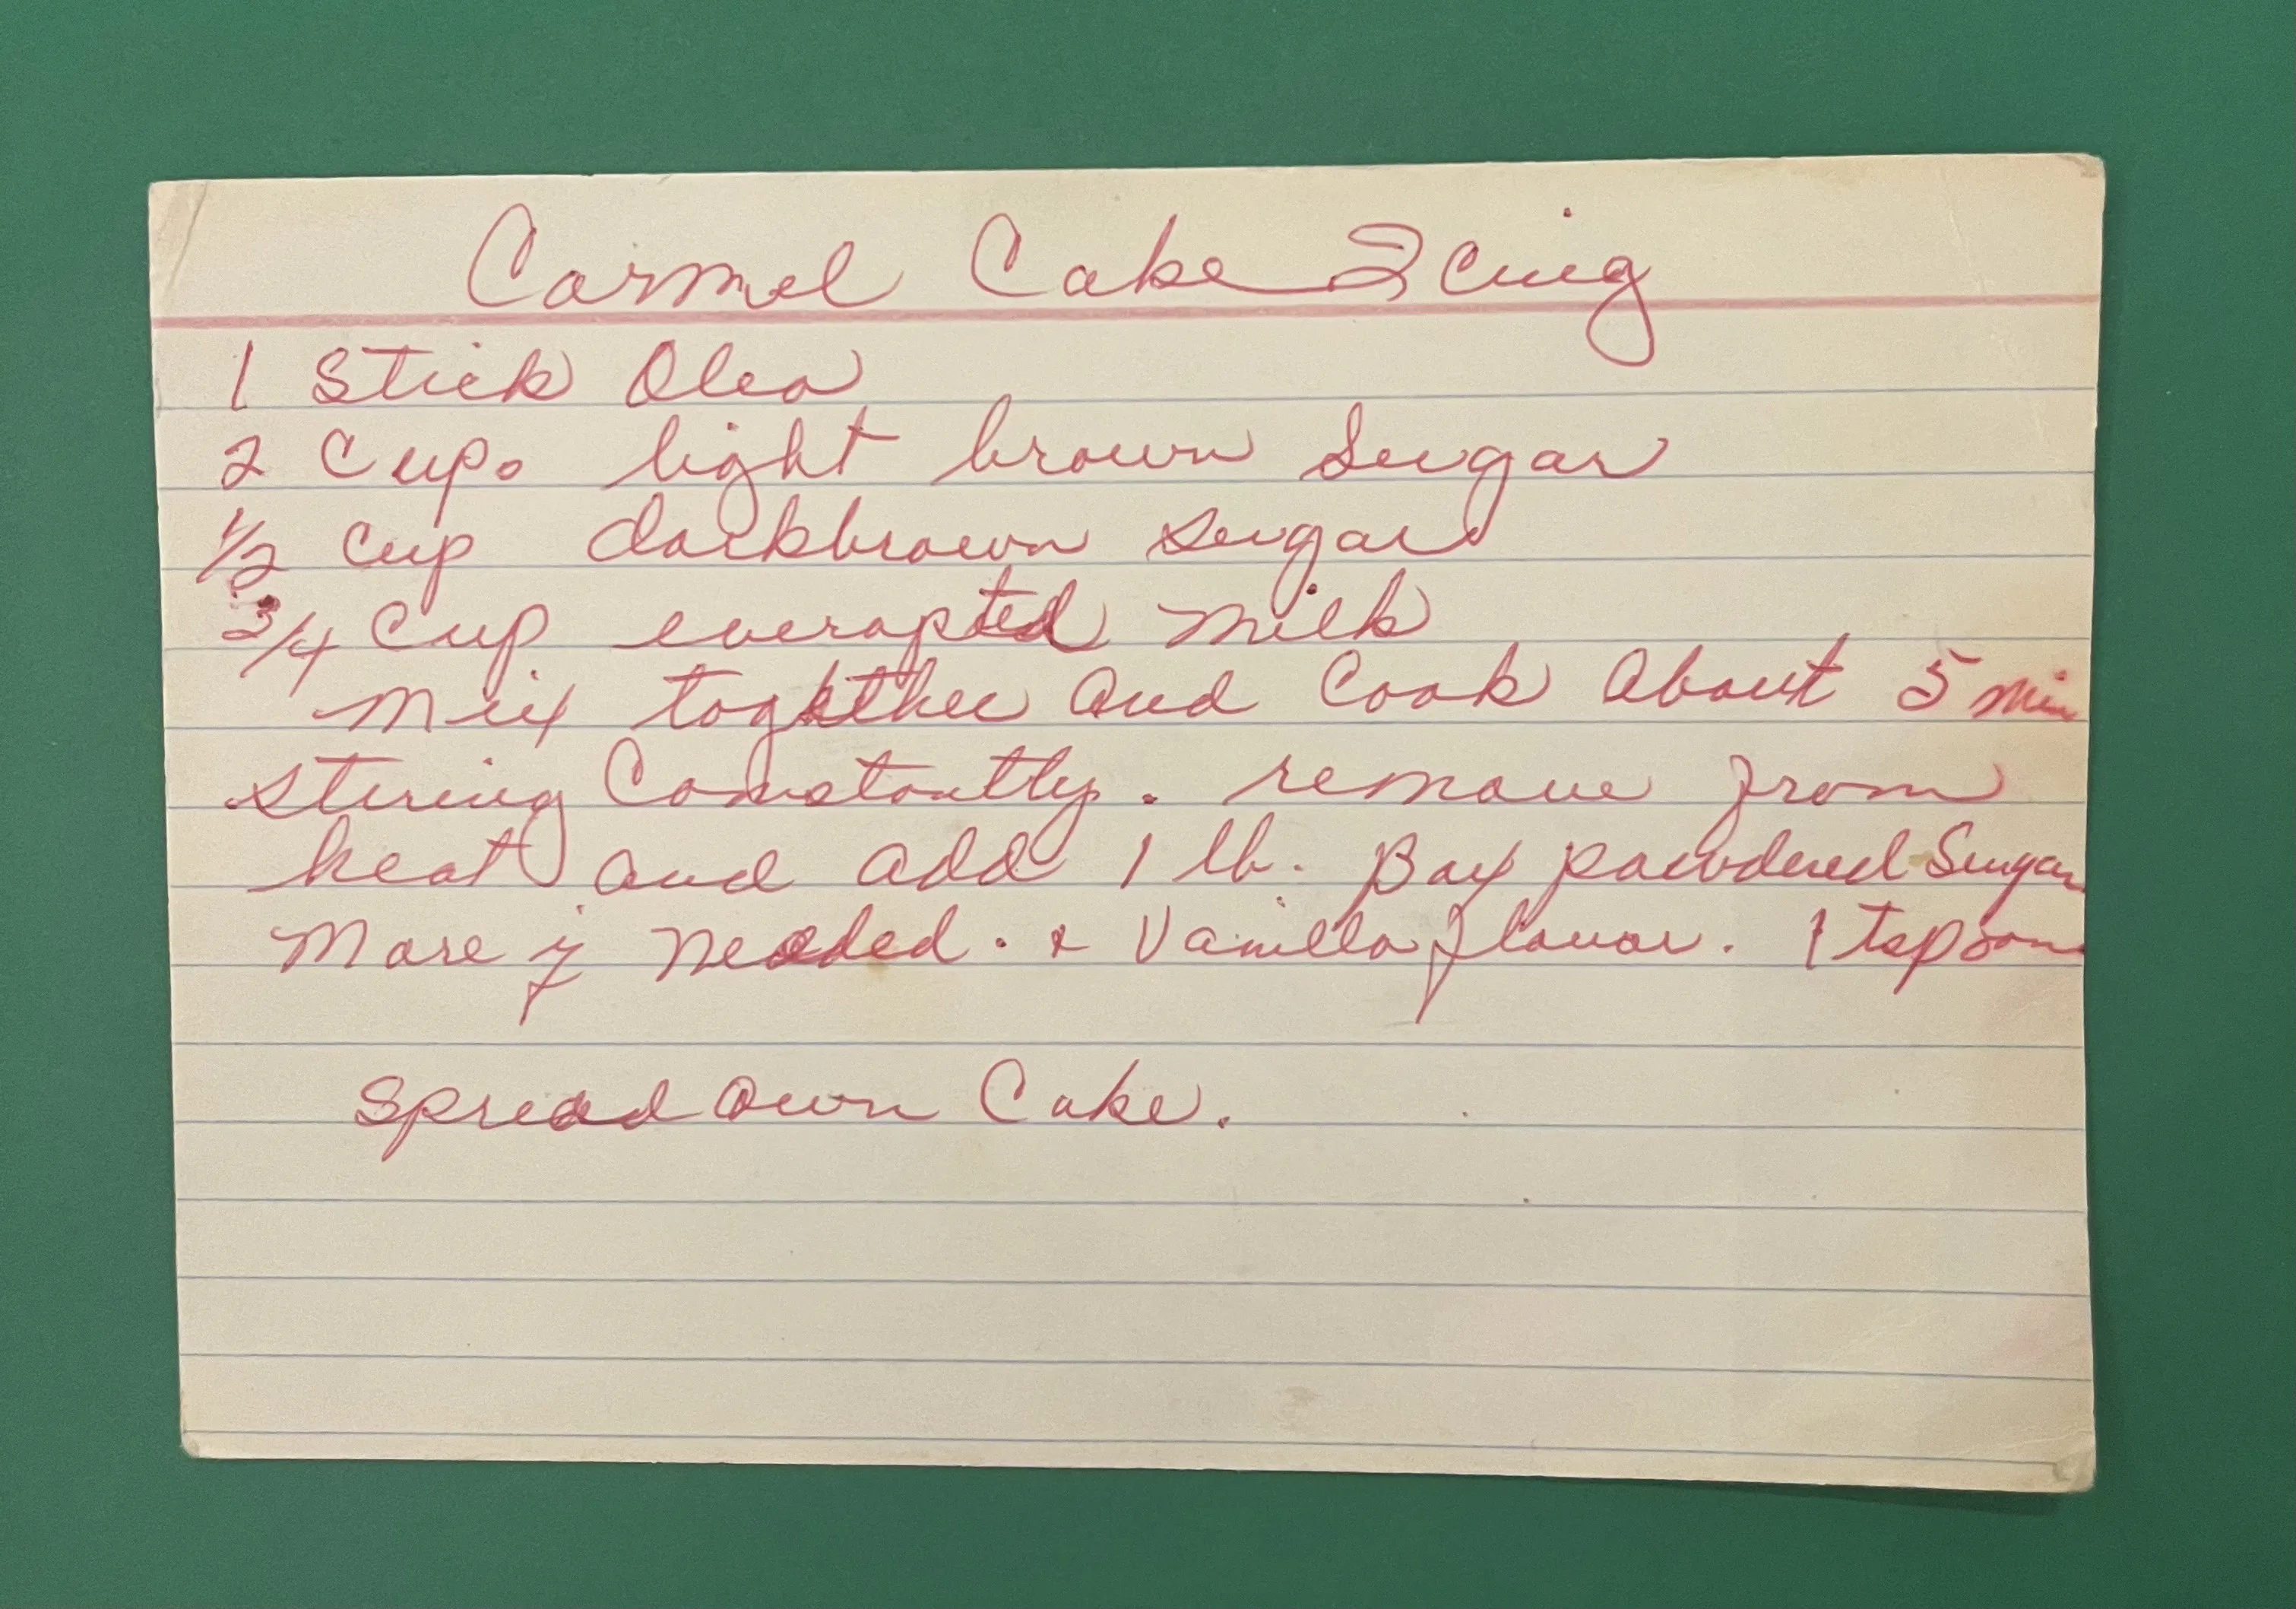 Carmel Cake Icing
1 Stick Oleo
2 Cups light brown Sugar
1/2 Cup darkbrown sugar
3/4 Cup everapted milk
Mix together and Cook About 5 min
stiring Constantly. remove from
heat and add 1 lb. Box powdered Sugar
More if Needed. & Vanilla flavor. 1 tspoon
Spread own Cake.